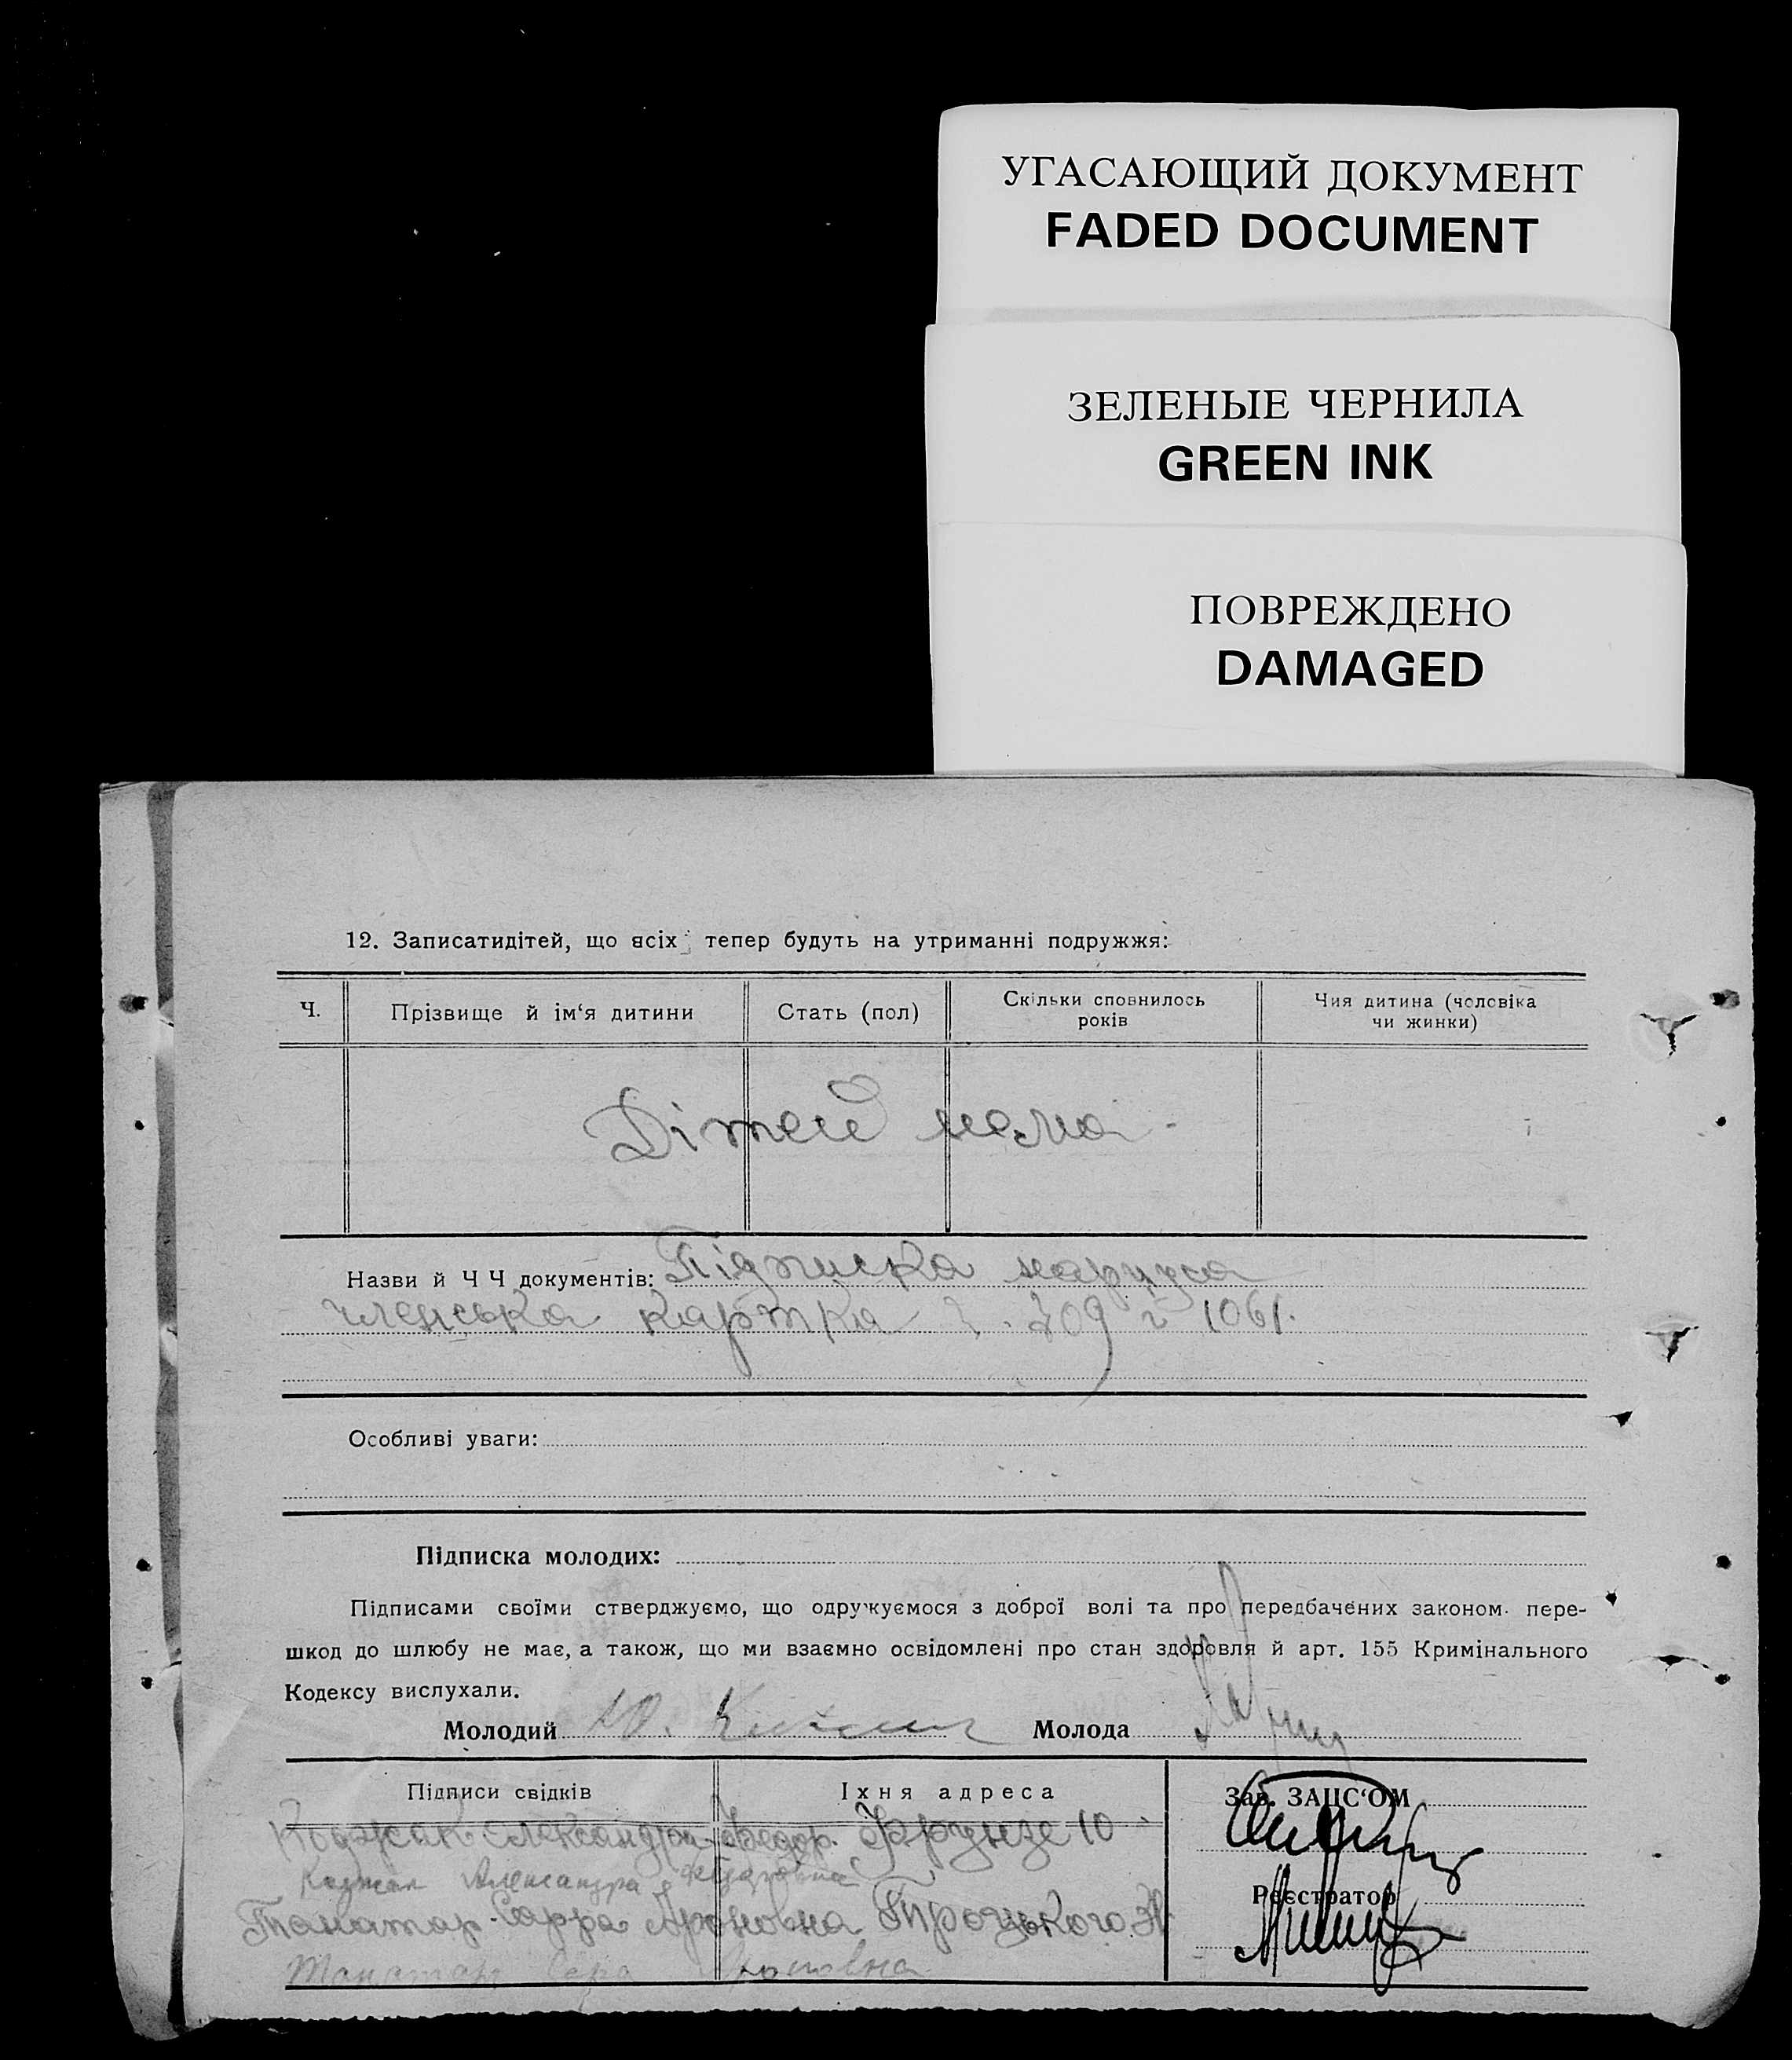 УГАСАЮЩИЙ ДОКУМЕНТ
FADED DOCUMENT
ЗЕЛЕНЫЕ ЧЕРНИЛА
GREEN INK
ПОВРЕЖДЕНО
DAMAGED
12. Записатидітей, що всіх тепер будуть на утриманні подружжя:
Ч. Прізвище й ім‘я дитини Стать (пол) Скільки сповнилось років Чия дитина (чоловіка чи жинки)
Дітей нема -
Назви й Ч Ч документів: Підписка наруча
членська картка Ч. 709 й 1061.
Особливі уваги:
Підписка молодих:
Підписами своїми стверджуємо, що одружуємося з доброї волі та про передбачених законом пере-
шкод до шлюбу не має, а також, що ми взаємно освідомлені про стан здоровля й арт. 155 Кримінального
Кодексу вислухали.
Молодий Ю. Молода
Підписи свідків Їхня адреса Зав. ЗАЦС‘ОМ
Коджак Олександра Федор. Фрунзе 10
Коджак Александра Федоровна
Реєстратор
Танатар Сарра Ароновна Троцького
Танатар Сара Ароновна